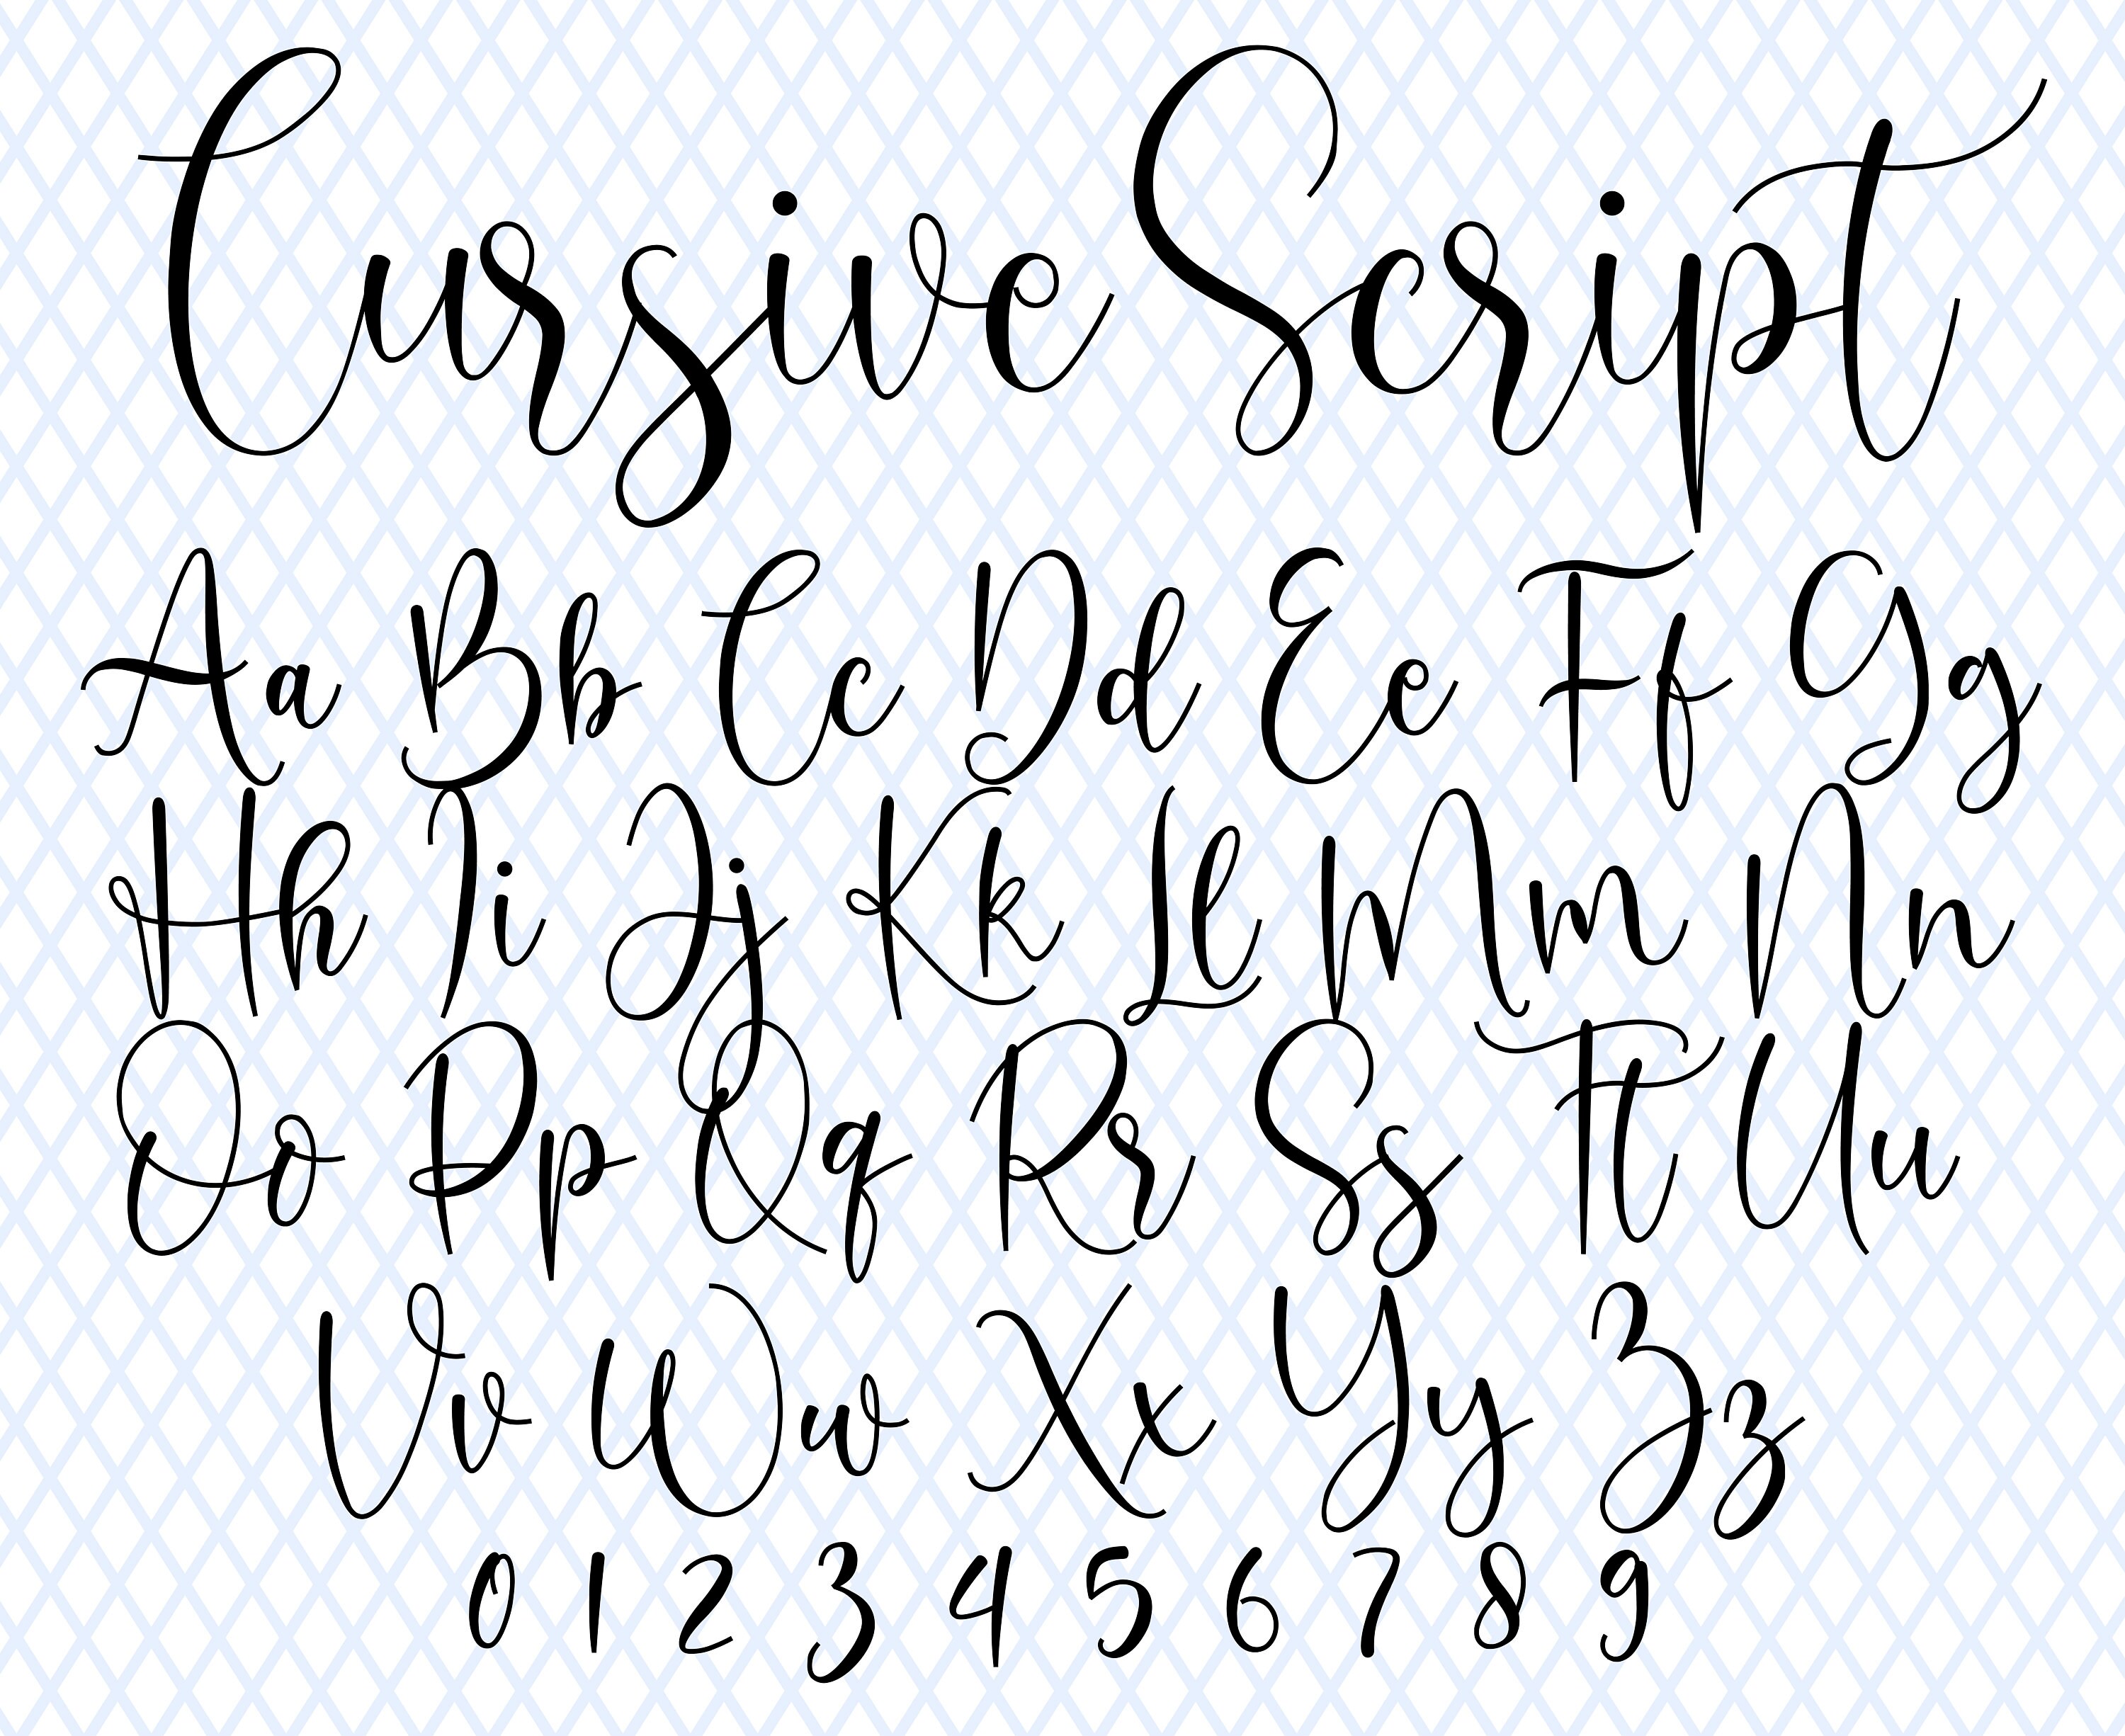 Cursive Script
Aa Bb Cc Dd Ee Ff Gg
Hh Ii Jj Kk Ll Mm Nn
Oo Pp Qq Rr Ss Tt Uu
Vv Ww Xx Yy Zz
0 1 2 3 4 5 6 7 8 9